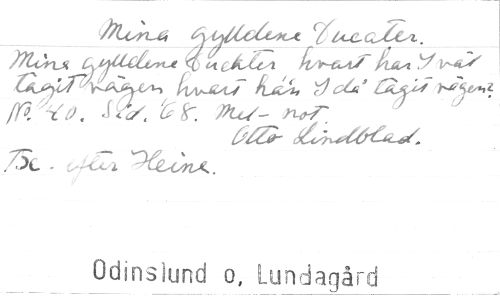 Mina gyllene Ducater.
Mina gyllene Duckter hvart har I väl
tagit vägen hvart hän I då tagit vägen?
No. 40. Sid. 68. Mel- not.
Otto Lindblad.
efter Heine.
Odinslund o, Lundagård